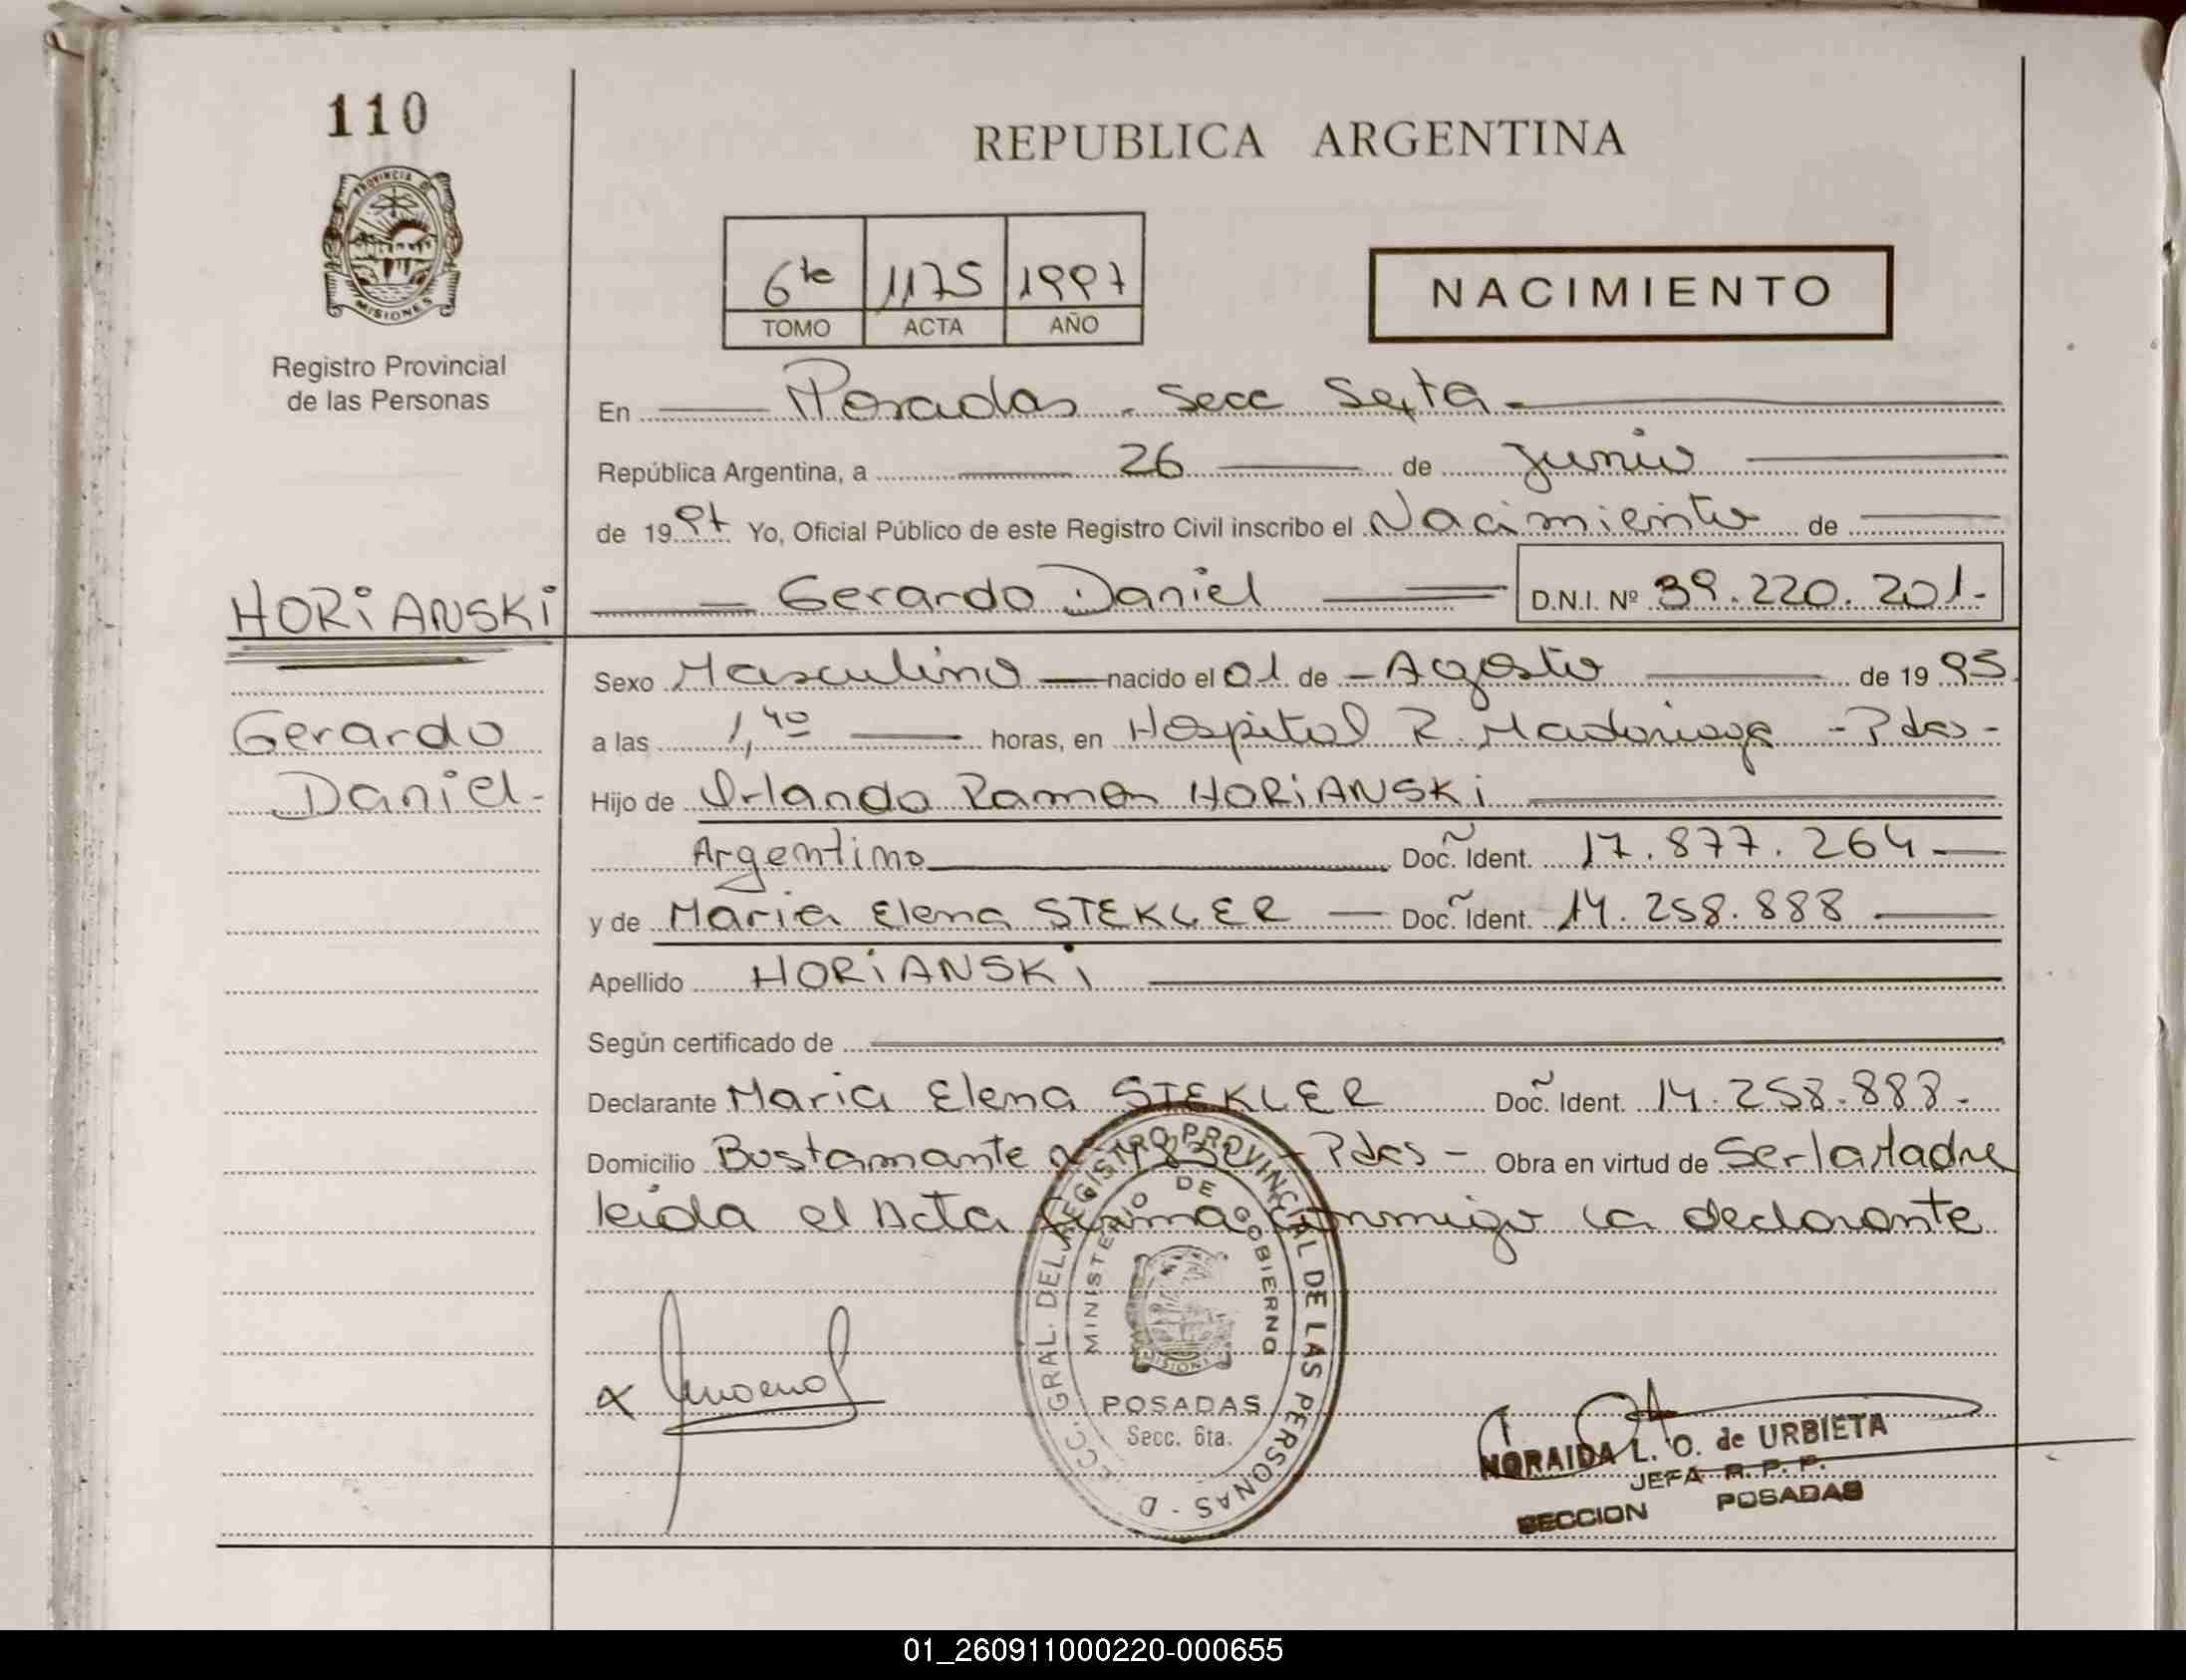 110
REPUBLICA ARGENTINA
PROVINCIA D
MISIONES
6ta 1175 1997
TOMO ACTA AÑO
NACIMIENTO
Registro Provincial
de las Personas
En Posadas - Secc Sexta -
República Argentina, a 26 de Junio
de 1997 Yo, Oficial Público de este Registro Civil inscribo el Nacimiento de
HORiANSKi Gerardo Daniel D.N.I. Nº 39.220.201.-
Sexo Masculino nacido el 01 de - Agosto de 1995
Gerardo
a las 1,40 horas, en Hospital R. Madariaga - Pdas -
Daniel -
Hijo de Orlando Ramon HORiANSKi
Argentino Doc. Ident. 17.877.264
y de Maria Elena STEKLER Doc. Ident. 14.258.888
Apellido HORiANSKi
Según certificado de
Declarante Maria Elena STEKLER Doc. Ident. 14.258.888.-
Domicilio Bustamante 4832 - Pdas - Obra en virtud de Ser la Madre
leida el Acta firma conmigo la declarante
GRAL. DEL REGISTRO PROVINCIAL DE LAS PERSONAS - D
MINISTERIO DE GOBIERNO
POSADAS
Secc. 6ta.
NORAIDA L. O. de URBIETA
JEFA R. P. P.
SECCION POSADAS
01_260911000220-000655